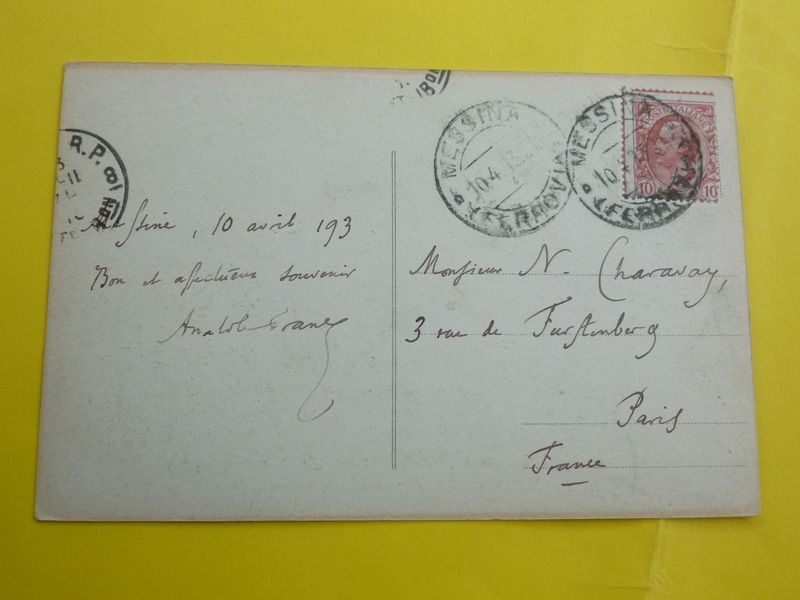 R.P. 8
MESSINA
10.4.13
(FERROVIA)
MESSINA
10.4.13
(FERROVIA)
POSTE ITALIANE
10 10
Messine, 10 avril 193
Bon et afectueux souvenir
Anatole France
Monsieur N. Charavay,
3 rue de Furstenberg
Paris
France